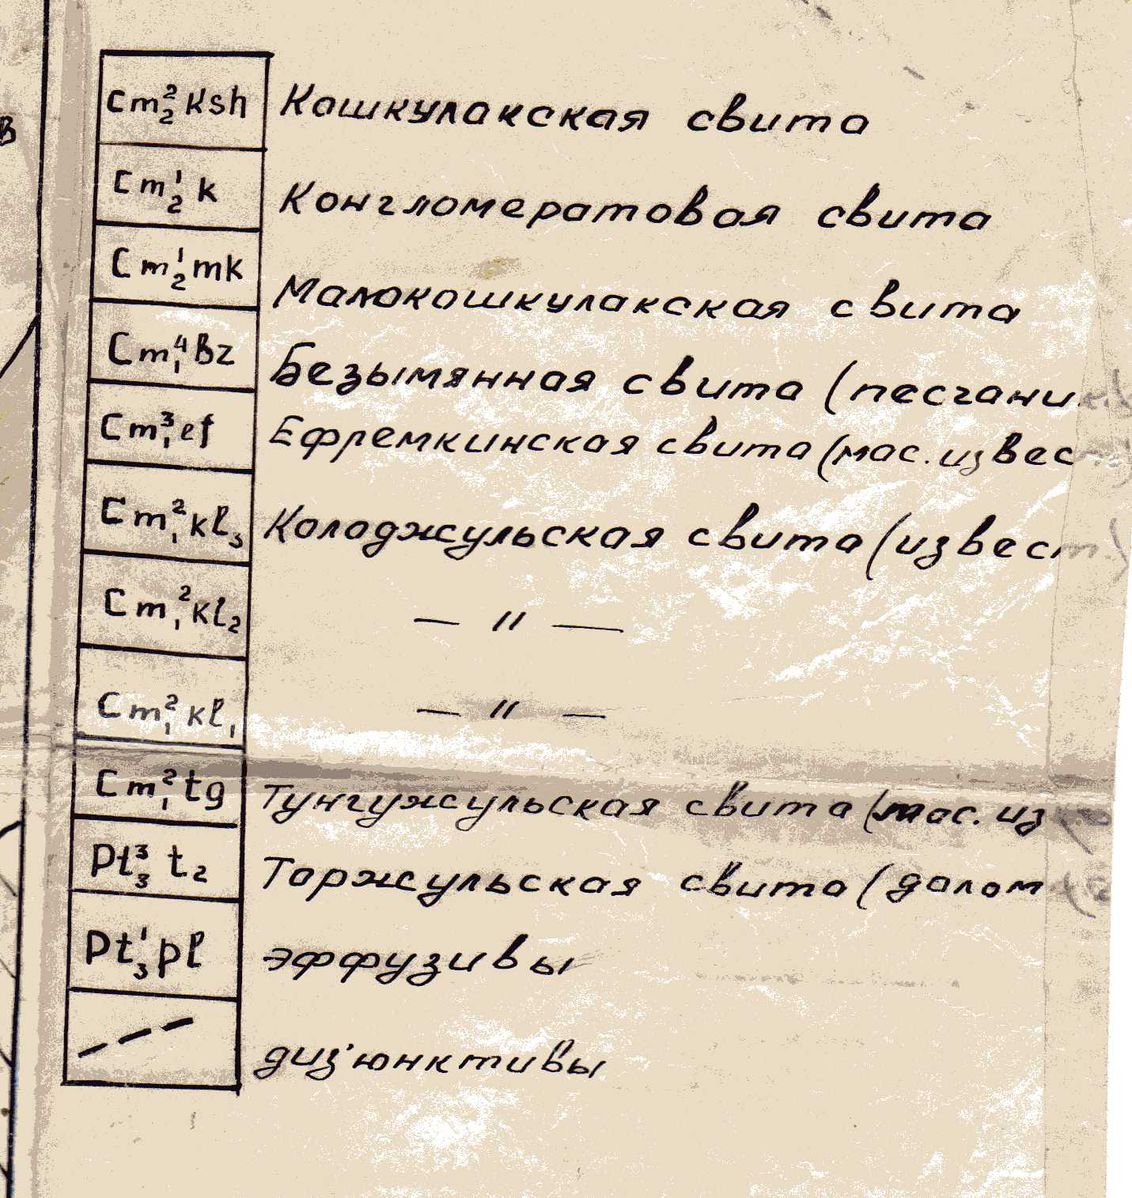 В
Cm₂²ksh Кошкулакская свита
Cm₂¹k Конгломератовая свита
Cm₂¹mk Малокошкулакская свита
Cm₁⁴Bz Безымянная свита (песчани
Cm₁³ef Ефремкинская свита (мас. извес
Cm₁²kl₃ Колоджульская свита (извест.
Cm₁²kl₂ — " —
Cm₁²kl₁ — " —
Cm₁²tg Тунгужульская свита (мас. из
Pt₃³t₂ Таржульская свита (далом
Pt₃¹pl эффузивы
диз'юнктивы